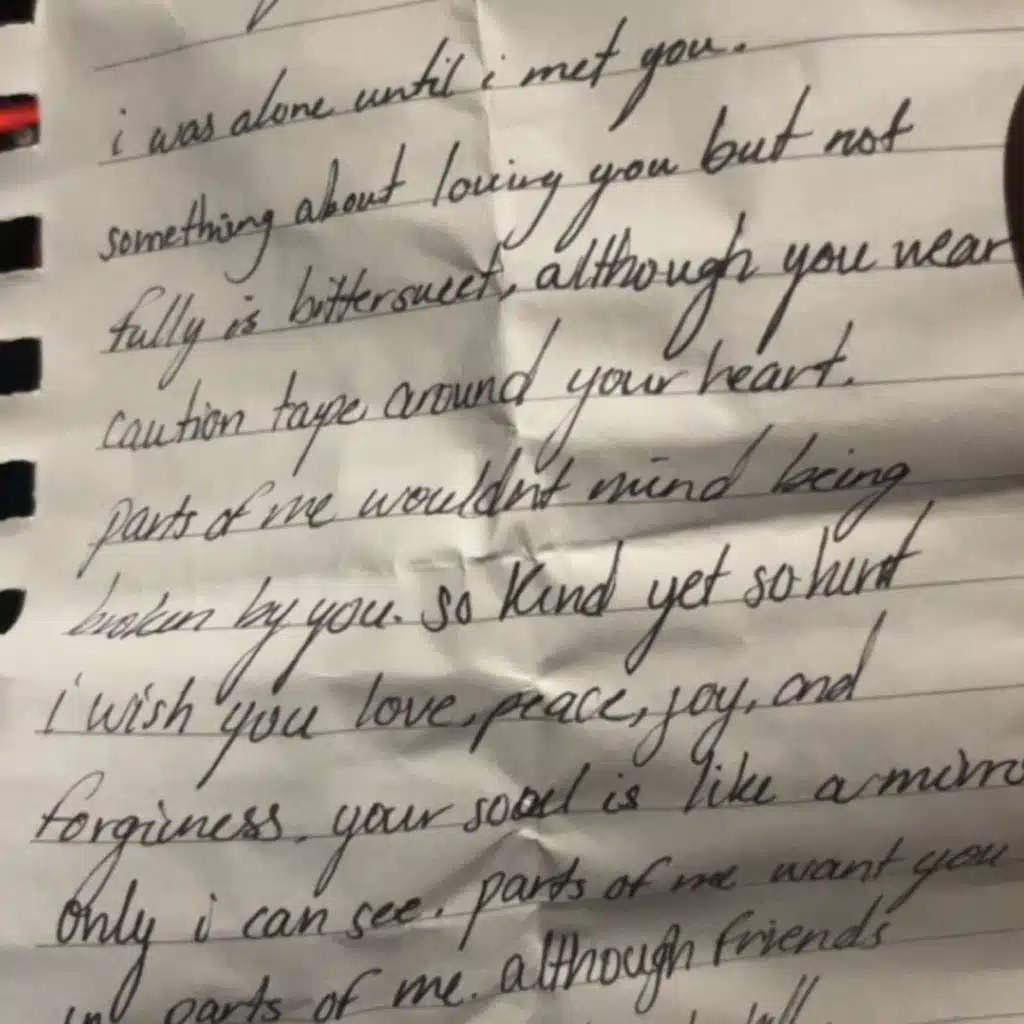 i was alone until i met you.
something about loving you but not
fully is bittersweet, although you wear
caution tape around your heart.
parts of me wouldnt mind being
broken by you. so kind yet so hurt
i wish you love, peace, joy, and
forgiveness. your soul is like a mirro
only i can see. parts of me want you
in parts of me. although friends